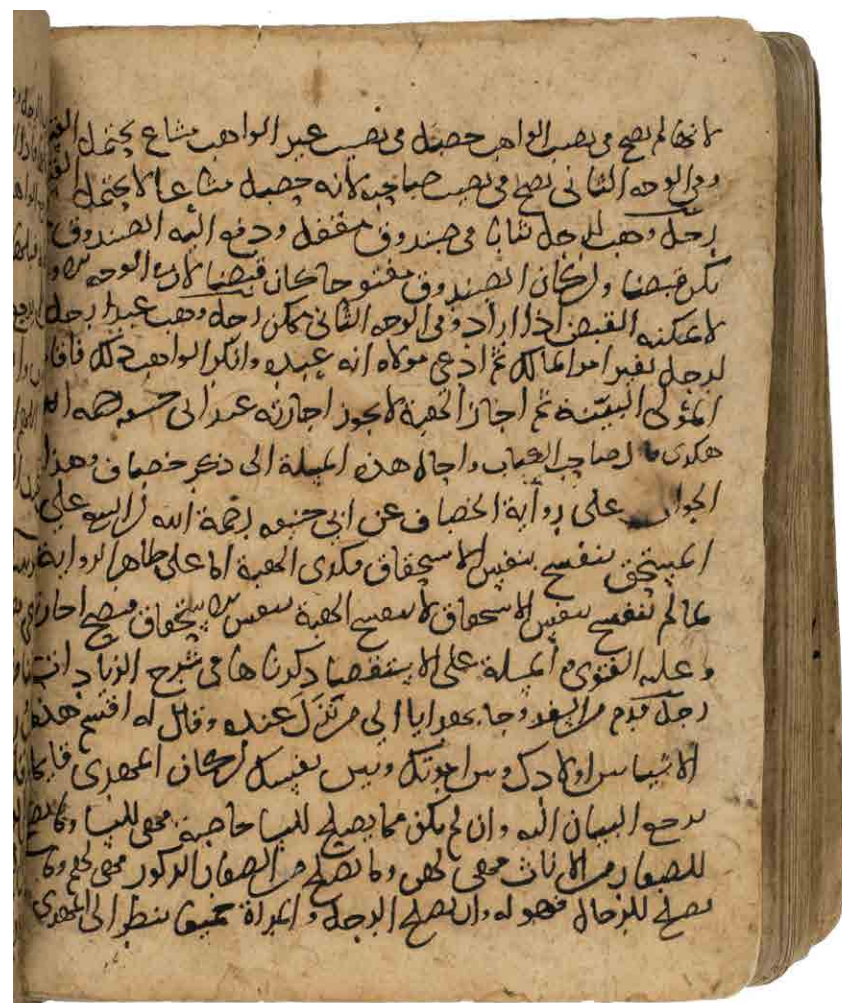 لانها لم تصح فى نصيب الواهب حصل فى نصيب غير الواهب مشاع يحتمل
وفى الوجه الثانى تصح فى نصيب صاحبه لانه حصل مشاعا لا يحتمل
رجل وهب لرجل ثيابا فى صندوق مقفل ودفع اليه الصندوق
يكن قبضا وان كان الصندوق مفتوحا كان قبضا لان الوجه
لا يمكنه القبض اذا اراد وفى الوجه الثانى يمكن رجل وهب عبدا رجل
لرجل بغير امر المالك ثم ادعى مولاه انه عبده وانكر الواهب ذلك فاقام
المولى البينة ثم اجاز الهبة لا يجوز اجازته عند ابى حنيفة
هكذى صاحب الكتاب واحال هذه المسلة الى ذكر خصاف وهذا
الجواب على رواية الخصاف عن ابى حنيفه رحمة الله
المستحق ينفسخ بنفس الاستحقاق فكذى الهبة اما على ظاهر الرواية
لما لم تنفسخ بنفس الاستحقاق لا تنفسخ الهبة بنفس الاستحقاق فتصح
وعليه الفتوى المسلة على الاستقصا ذكرناها فى شرح الزيادات
رجل قدم من السفر وجا بهدايا الى من نزل عنده وقال له اقسم هذه
الاشيا بين اولادك وبين اخوتك وبين نفسك ان كان المهدى قايما
يرجع البيان اليه وان لم يكن مما يصلح للنسا خاصة فهى للنسا وما يصلح
للصغار من الاناث فهى لهن وما يصلح من الصغار الذكور فهى لهم وما
يصلح للرجال فهو له وان يصلح الرجل والمراة جميعا ينظر الى المهدى